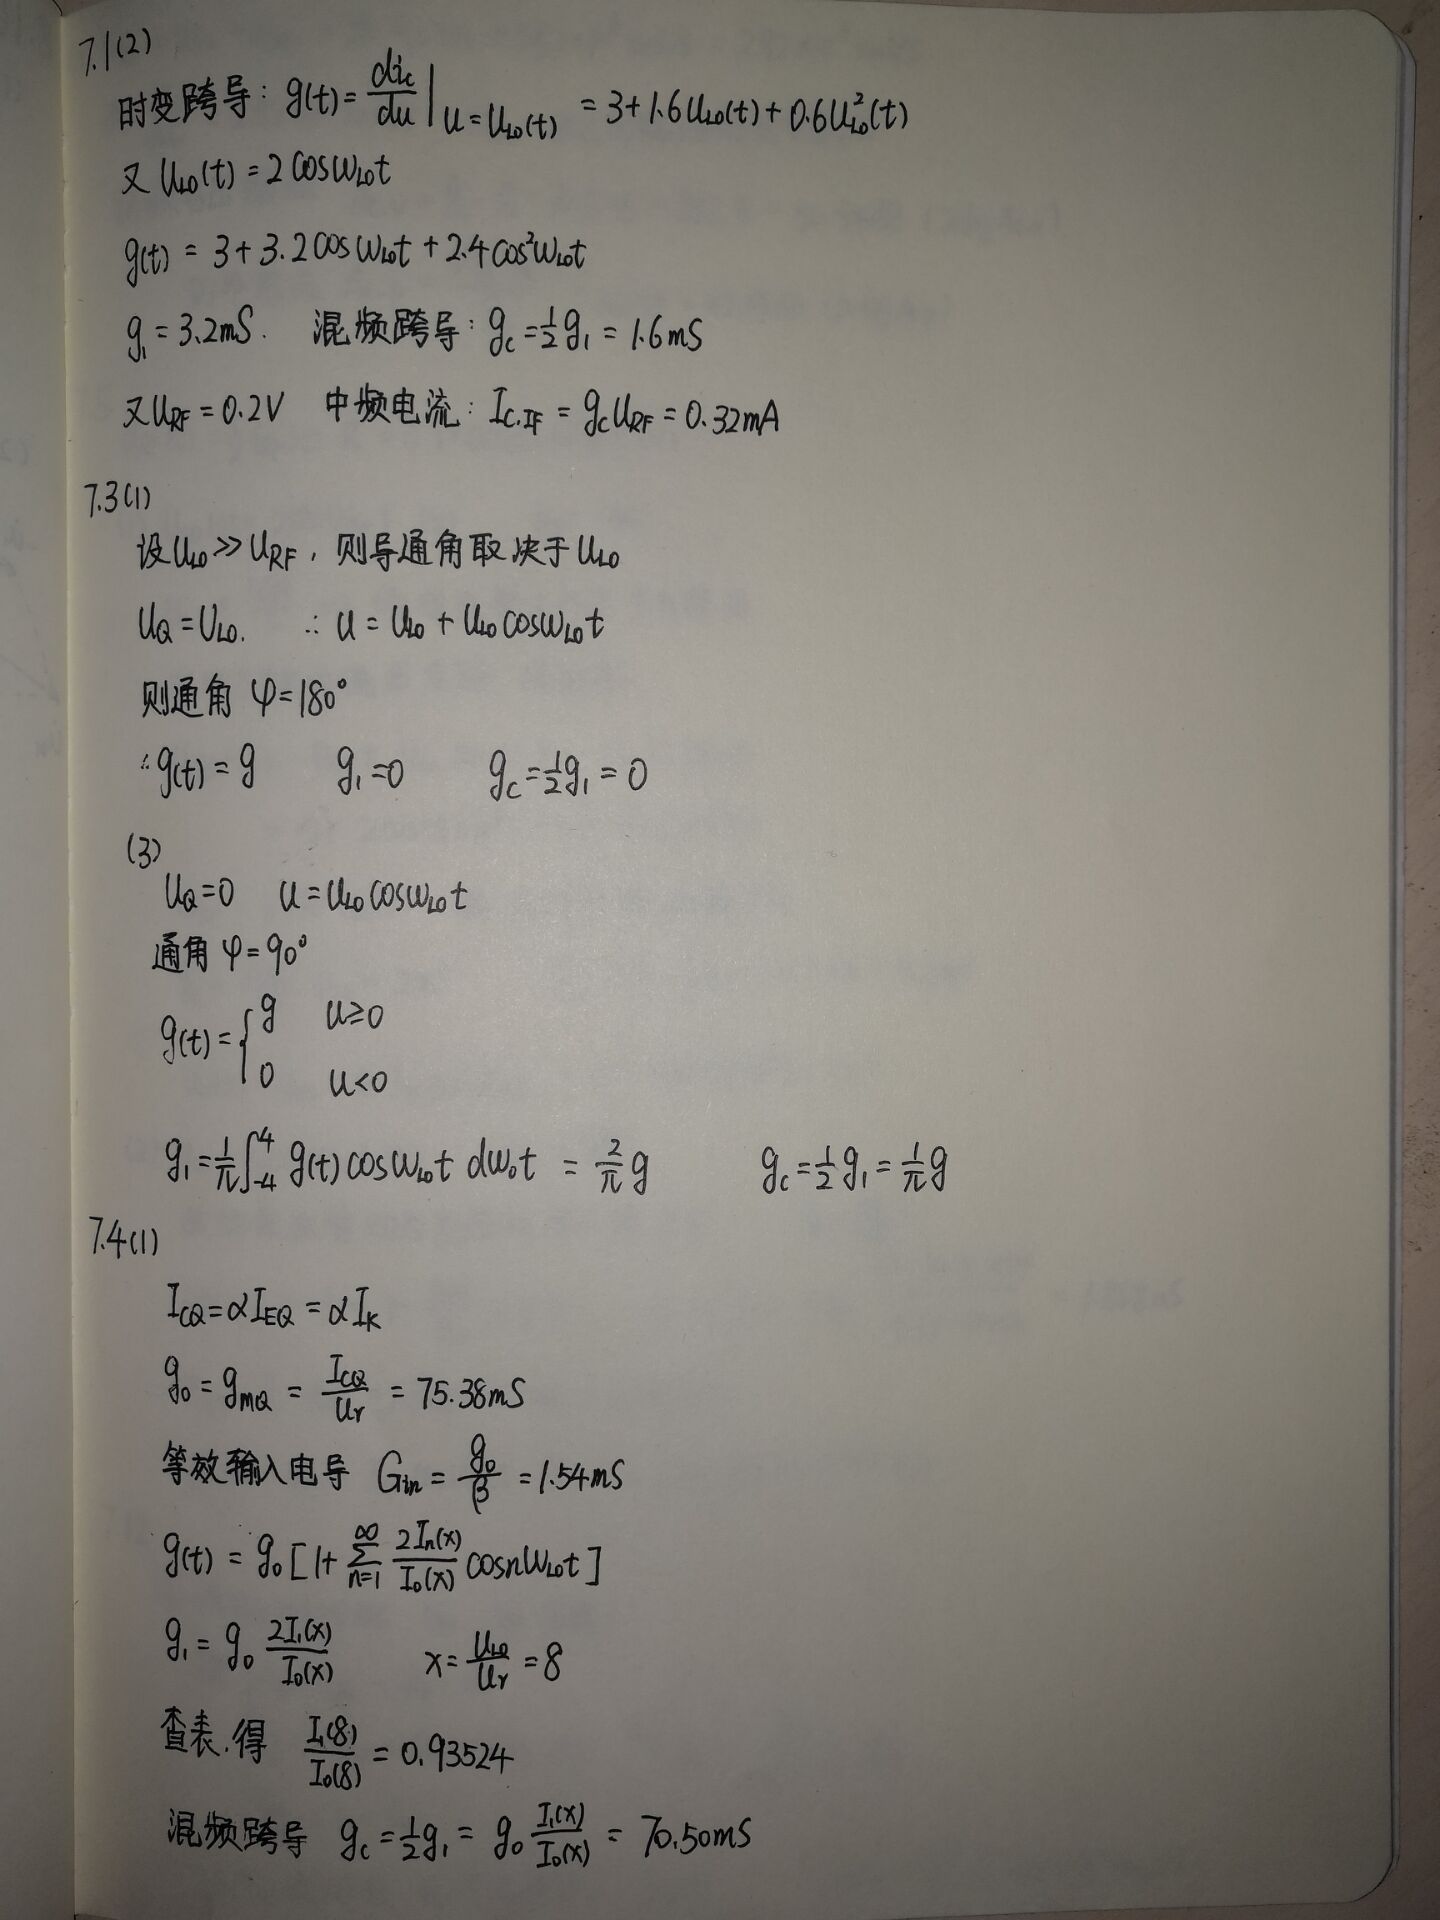 7.1(2)
时变跨导: g(t)=dic/du|u=uLo(t) =3+1.6uLo(t)+0.6uLo²(t)
又 uLo(t)=2cosωLot
g(t)=3+3.2cosωLot+2.4cos²ωLot
g₁=3.2mS. 混频跨导: gc=½g₁=1.6mS
又URF=0.2V 中频电流: Ic.IF=gcURF=0.32mA
7.3(1)
设uLo≫uRF, 则导通角取决于uLo
UQ=ULo. ∴u=uLo+uLocosωLot
则通角 φ=180°
∴g(t)=g g₁=0 gc=½g₁=0
(3)
UQ=0 u=uLocosωLot
通角 φ=90°
g(t)={g u≥0
0 u<0
g₁=1/π∫₋₄⁴ g(t)cosωLot dωot =2/π g gc=½g₁=1/π g
7.4(1)
ICQ=αIEQ=αIK
g₀=gmQ=ICQ/Ur=75.38mS
等效输入电导 Gin=g₀/β=1.54mS
g(t)=g₀[1+∑n=1∞ 2In(x)/I₀(x) cosnωLot]
g₁=g₀ 2I₁(x)/I₀(x) x=ULo/Ur=8
查表.得 I₁(8)/I₀(8)=0.93524
混频跨导 gc=½g₁=g₀ I₁(x)/I₀(x)=70.50mS